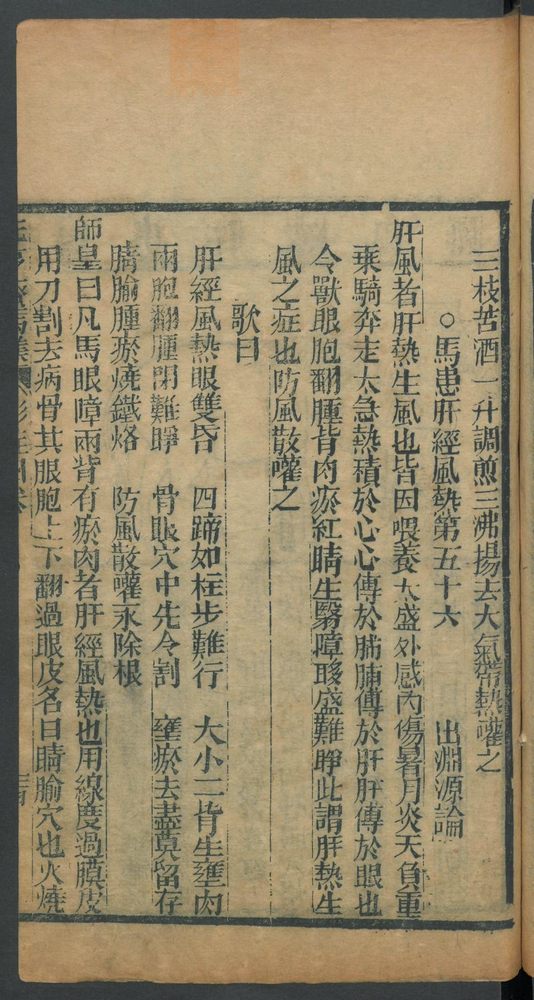 三枝苦酒一升調煎三沸揚去大氣帶熱灌之
○馬患肝經風熱第五十六 出淵源論
肝風者肝熱生風也皆因喂養太盛外感內傷暑月炎天負重
乘騎奔走太急熱積於心心傳於肺肺傳於肝肝傳於眼也
令獸眼胞翻腫眥肉瘀紅睛生翳障眵盛難睜此謂肝熱生
風之症也防風散灌之
歌曰
肝經風熱眼雙昏 四蹄如柱步難行 大小二眥生壅肉
兩胞翻腫閉難睜 骨眼穴中先令割 壅瘀去盡莫留存
睛腧腫瘀燒鐵烙 防風散灌永除根
師皇曰凡馬眼障兩眥有瘀肉者肝經風熱也用線度過膜皮
用刀割去病骨其眼胞上下翻過眼皮名曰睛腧穴也火燒